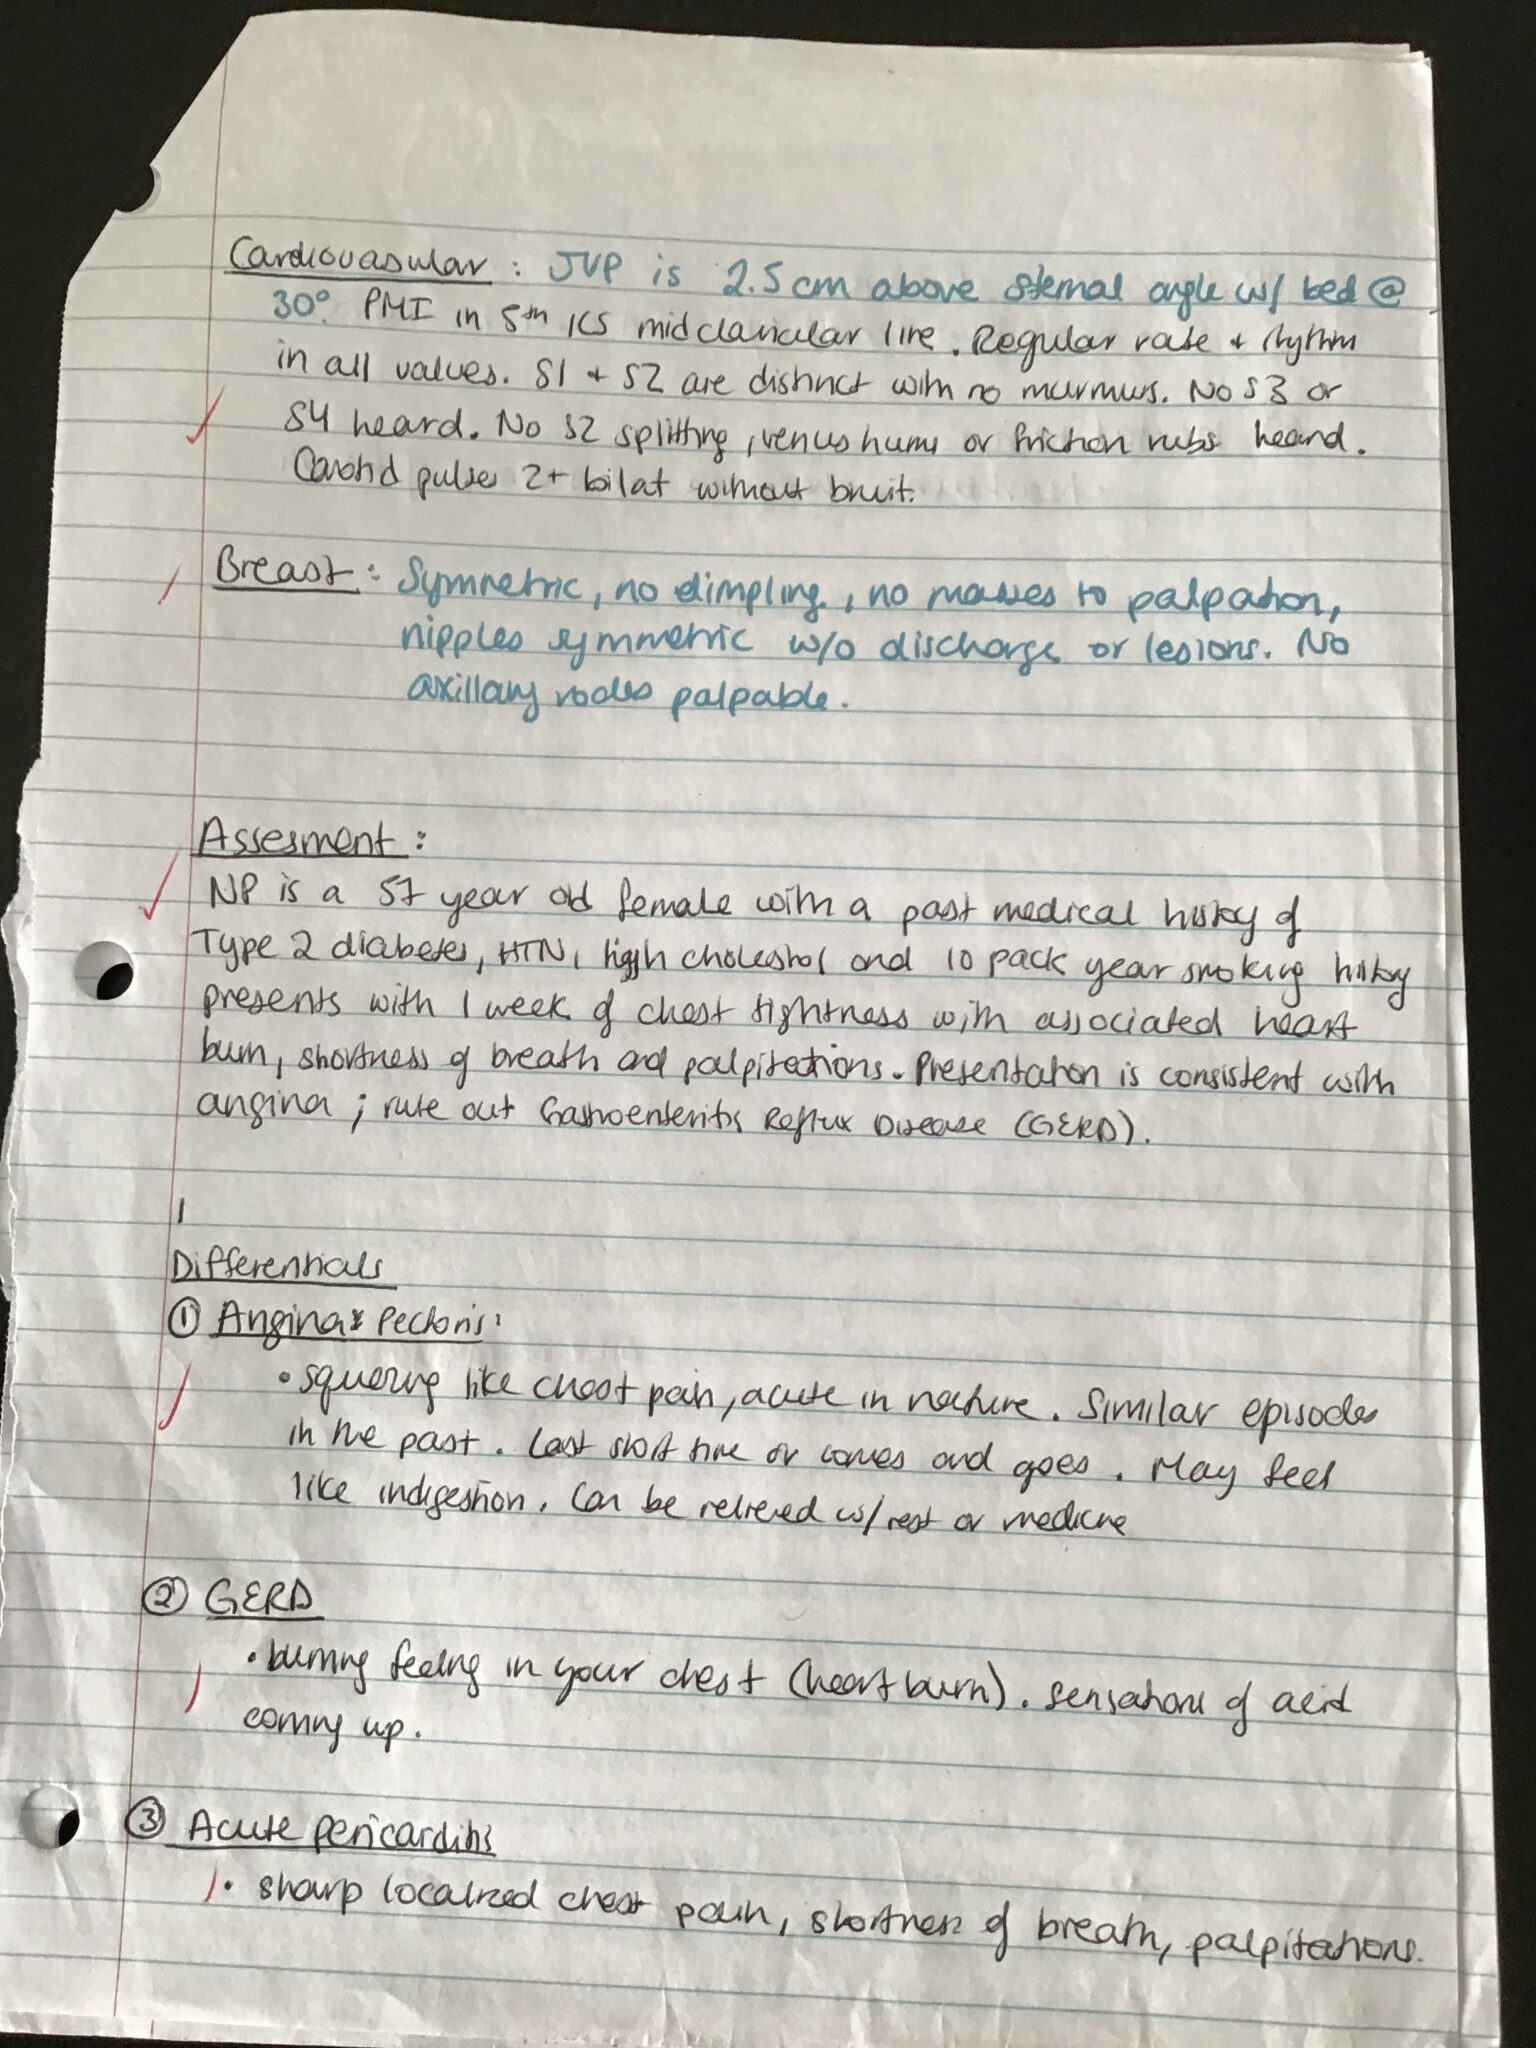 Cardiovasular : JVP is 2.5cm above sternal angle w/ bed @
30°. PMI in 5th ICS midclavicular line. Regular rate + rhythm
in all values. S1 + S2 are distinct with no murmurs. No S3 or
S4 heard. No S2 splitting, venus hums or friction rubs heard.
Carotid pulses 2+ bilat without bruit.
Breast : Symmetric, no dimpling, no masses to palpation,
nipples symmetric w/o discharge or lesions. No
axillary nodes palpable.
Assesment :
NP is a 57 year old female with a past medical history of
Type 2 diabetes, HTN, high cholestrol and 10 pack year smoking history
presents with 1 week of chest tightness with associated heart
burn, shortness of breath and palpitations. Presentation is consistent with
angina ; rule out Gastroenteritis Reflux Disease (GERD).
1
Differentials
① Angina Pectoris:
• squeezing like chest pain, acute in nature. Similar episodes
in the past. Last short time or comes and goes. May feel
like indigestion. Can be relieved w/ rest or medicine
② GERD
• burning feeling in your chest (heart burn). Sensations of acid
coming up.
③ Acute pericarditis
• sharp localized chest pain, shortness of breath, palpitations.